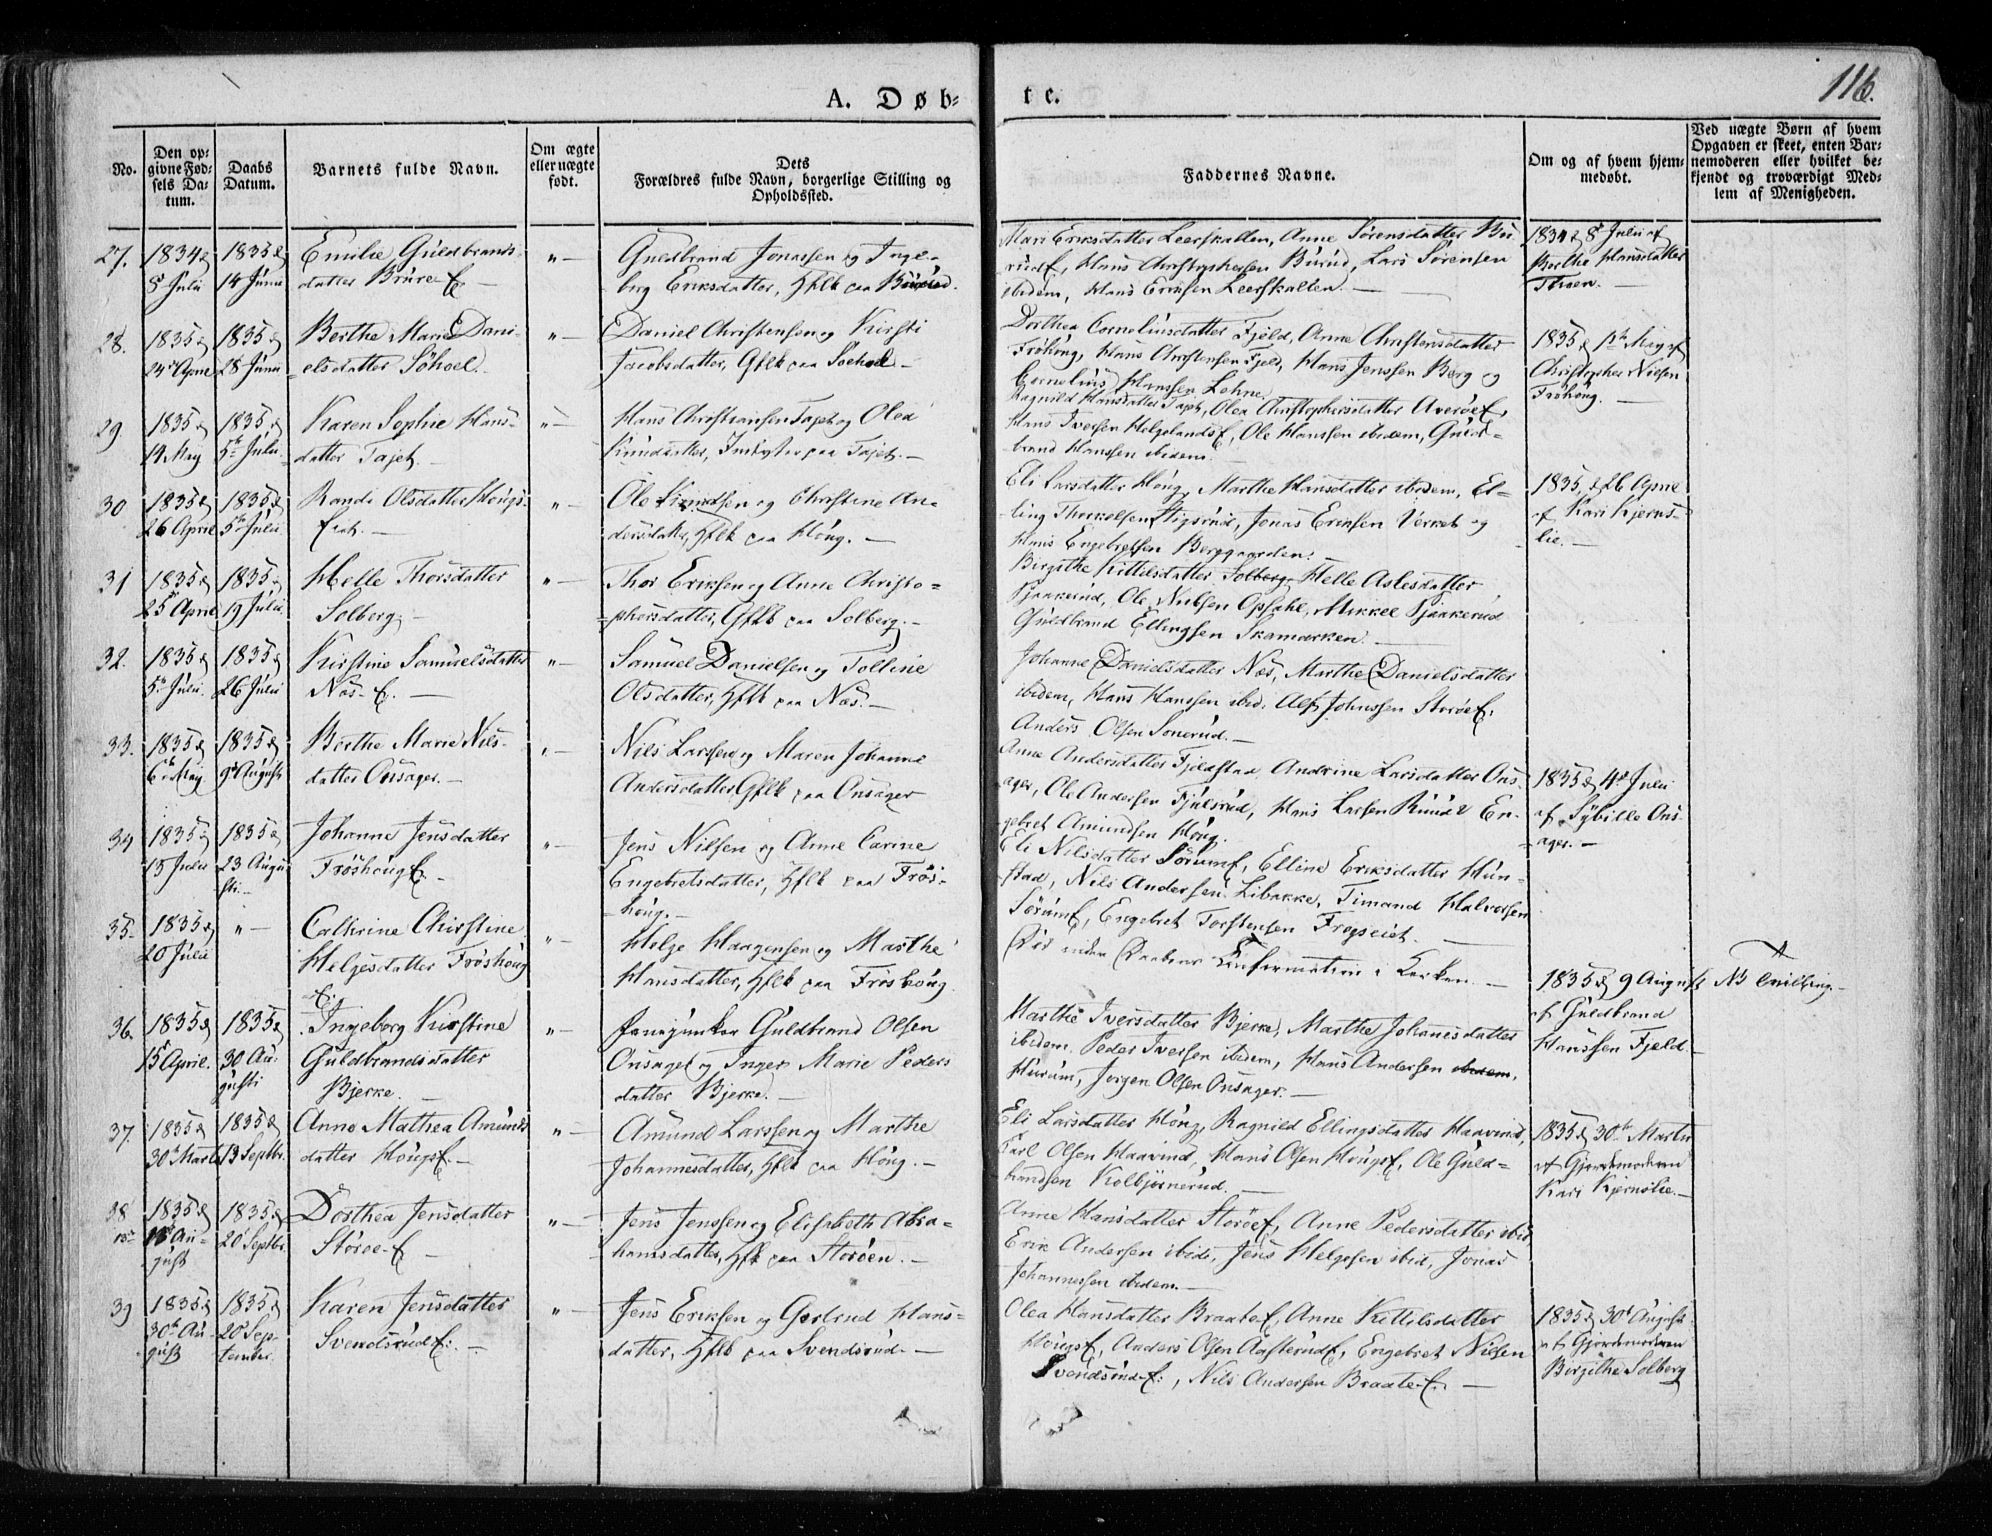 116.
A. Døb-
te.
No.
Den op-
givne Fød-
sels Da-
tum.
Daabs
Datum.
Barnets fulde Navn.
Om ægte
eller uægte
født.
Dets
Forældres fulde Navn, borgerlige Stilling og
Opholdssted.
Faddernes Navne.
Om og af hvem hjem-
medøbt.
Ved uægte Børn af hvem
Opgaven er skeet, enten Bar-
nemoderen eller hvilket be-
kjendt og troværdigt Med-
lem af Menigheden.
27.
1834 d
8 Julii
1835 d
14 Junii
Emilie Guldbrands-
datter
" —
Guldbrand Jonassen og Inge-
borg Eriksdatter, Gflk paa
Mari Eriksdatter Leerskallen, Anne Sørensdatter Bu-
rud, Hans Christophersen Burud, Lars Sørensen
ibidem, Hans Eriksen Leerskallen. —
1834 d 8 Julii af
Berthe Hansdatter
28.
1835 d
24 April
1835 d
28 Junii
Berthe Marie Dani-
elsdatter Søhoel.
" —
Daniel Christensen og Kirsti
Jacobsdatter, Gflk paa Soehoel
Dorthea Corneliusdatter Fjeld, Anne Christensdatter
Frøhoug, Hans Christensen Fjeld, Hans Jenssen Berg og
Cornelius Hanssen Lohne.
1835 d May af
Christopher Nielsen
Frøhoug. —
29
1835 d
14 May
1835 d
5te Julii
Karen Sophie Hans-
datter Tajet. —
" —
Hans Christiansen Tajet og Olea
Knudsdatter, paa Tajet. —
Ragnild Hansdatter Tajet, Olea Christophersdatter
Hans Iversen, Ole Hanssen ibidem, Guld-
brand Hanssen ibidem.
30
1835 d
26 April
1835 d
5te Julii
Randi Olsdatter Hougs-
" —
Ole Knudsen og Christine An-
dersdatter, Hflk paa Houg. —
Eli Larsdatter Houg, Marthe Hansdatter ibidem, El-
ling Thorkelsen Stigsrud, Jonas Eriksen Verket og
Hans Engebretsen Berggaarden. —
1835, d 26 April
af Kari Kjerns-
lie. —
31
1835 d
25 April
1835
19 Julii
Helle Thorsdatter
Solberg. —
" —
Thor Eriksen og Anne Christo-
phersdatter, Gflk paa Solberg. —
Birgithe Kittelsdatter Solberg, Helle Aslesdatter
Ole Nielsen Opsahl, Mikkel
Guldbrand Ellingsen Skamarken. —
32.
1835 d
5te Julii
1835 d
26 Julii
Kirstine Samuelsdatter
Næs-E. —
" —
Samuel Danielsen og Tolline
Olsdatter, Hflk paa Næs. —
Johanne Danielsdatter Næs, Marthe Danielsdatter
ibidem, Hans Hanssen ibid. Alf Johnssen Storøe
Anders Olsen Sonerud. —
33.
1835 d
6te May
1835 d
9 Augusti
Berthe Marie Nils-
datter Onsager. —
" —
Nils Larssen og Maren Johanne
Andersdatter, Gflk paa Onsager
Anne Andersdatter Fjeldstad, Andrine Larsdatter Ons-
ager, Ole Andersen Fjulsrud, Hans Larsen Ruud & En-
gebret Amundsen Houg.
1835 d 4de Julii
af Sybille Ons-
ager. —
34
1835 d
15 Julii
1835 d
23 Augu-
sti. —
Johanne Jensdatter
Frøshoug E. —
" —
Jens Nilsen og Anne Carine
Engebretsdatter, Hflk paa Frøs-
houg. —
Eli Nilsdatter Sørum, Elline Eriksdatter Hun-
stad, Nils Andersen Libakke, Timand Halvorsen
Sørum, Engebret Torstensen Fregseiet. —
35.
1835 d
20 Julii
" —
Cathrine Christine
Helgesdatter Frøshoug
E.
" —
Helge Haagensen og Marthe
Hansdatter, Hflk paa Frøshoug.
Død inden Daabens Confirmation i Kirken. —
1835 d 9 August
af Guldbrand
Hanssen Fjeld. —
NB Tvilling. —
36.
1835 d
15 April.
1835 d
30 Au-
gusti
Ingeborg Kirstine
Guldbrandsdatter
Bjerke. —
" —
Guldbrand Olsen
Onsaget og Inger Marie Peders
datter Bjerke. —
Marthe Iversdatter Bjerke, Marthe Johannesdatter
ibidem. Peder Iversen ibidem, Hans Andersen ibidem,
Hurum, Jørgen Olsen Onsager. —
37.
1835 d
30te Marts
1835 d
13 Septbr.
Anne Mathea Amunds
datter Hougs. —
" —
Amund Larssen og Marthe
Johannesdatter, Hflk paa Houg. —
Eli Larsdatter Houg, Ragnild Ellingsdatter Haavind,
Carl Olsen Haavind, Hans Olsen Hougs, Ole Guld-
brandsen Kolbjørnerud. —
1835 d 30te Martii
af Gjordemoderen
Kari Kjernslie. —
38
1835 d
Au-
gust
1835 d
20 Septbr.
Dorthea Jensdatter
Storøe-E —
" —
Jens Jenssen og Elisabeth Abra-
hamsdatter, Hflk paa Storøen. —
Anne Hansdatter Storøe, Anne Pedersdatter ibid
Erik Andersen ibid, Jens Helgesen ibid, Jonas
Johannessen ibidem. —
39
1835 d
30te Au-
gust
1835 d
20 Sep-
tember.
Karen Jensdatter
Svendsrud E. —
" —
Jens Eriksen og Gertrud Hans-
datter, Hflk paa Svendsrud. —
Olea Hansdatter Braate, Anne Kittilsdatter
Hougs, Anders Olsen Aasterud, Engebret Nilsen
Svendsrud, Nils Andersen Braate. —
1835 d 30te August
af Gjordemoderen
Birgithe Solberg